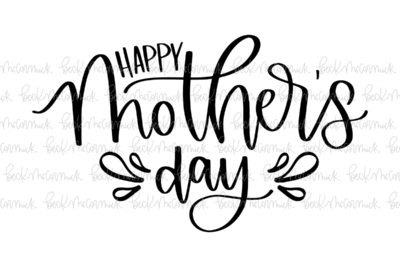 HAPPY
Mother's
day